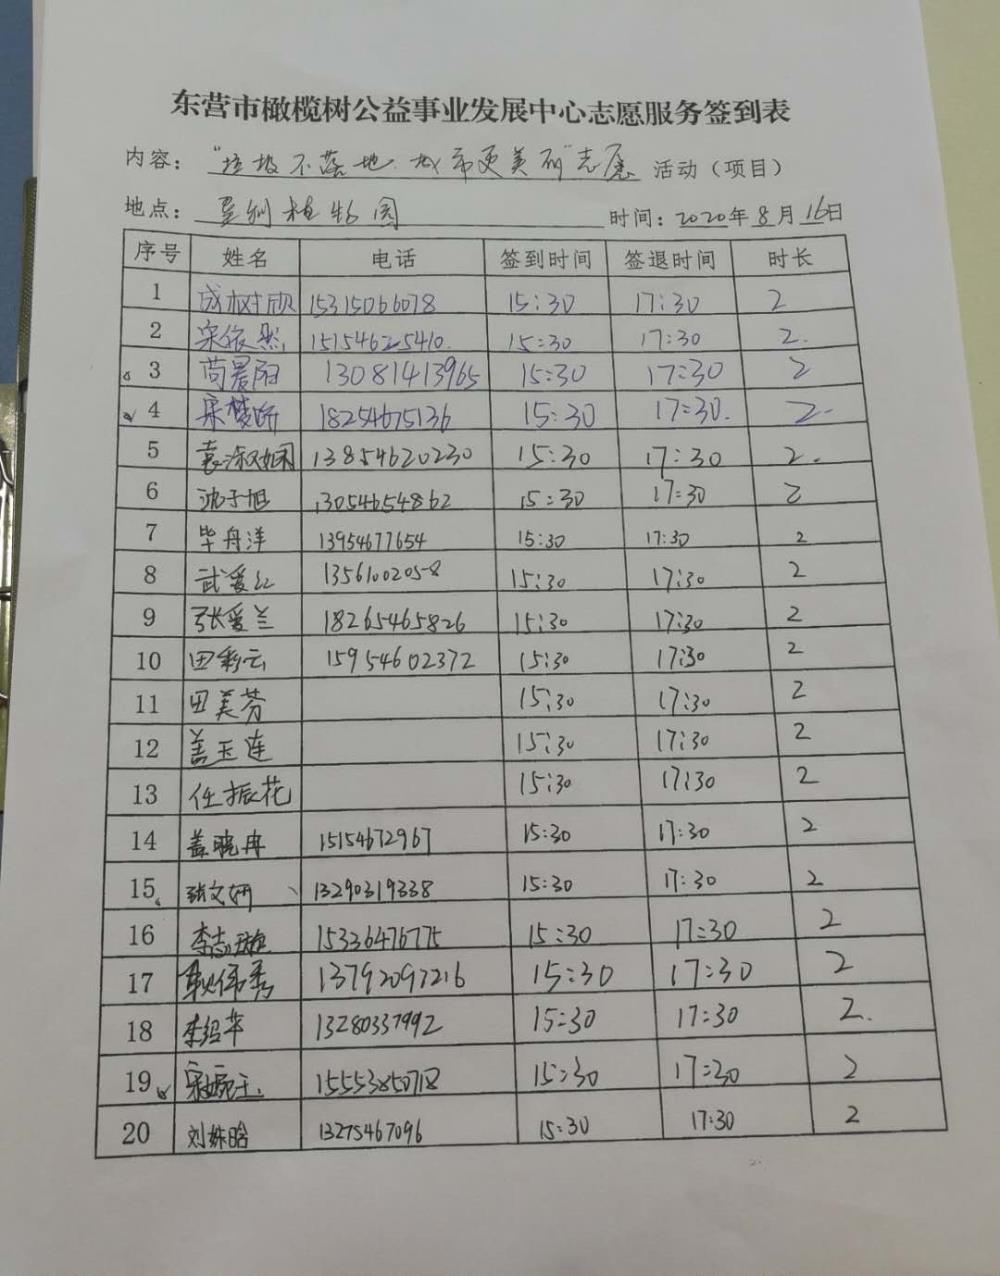 东营市橄榄树公益事业发展中心志愿服务签到表
内容：“垃圾不落地.城市更美丽”志愿 活动（项目）
地点：植物园 时间：2020年8月16日
序号 姓名 电话 签到时间 签退时间 时长
1 成树欣 15315066078 15:30 17:30 2
2 宋依然 15154625410. 15:30 17:30 2.
3 苘晨雨 13081413965 15:30 17:30 2
4 宋梦昕 18254675136 15:30 17:30. 2-
5 袁淑娴 13854620230 15:30 17:30 2.
6 沈子旭 13054654862 15:30 17:30 2
7 毕舟洋 13954677654 15:30 17:30 2
8 武爱红 13561002058 15:30 17:30 2
9 张爱兰 18265465826 15:30 17:30 2
10 田彩云 15954602372 15:30 17:30 2
11 田美芬 15:30 17:30 2
12 盖玉连 15:30 17:30 2
13 任振花 15:30 17:30 2
14 盖晓冉 15154672967 15:30 17:30 2
15 张文妍 13290319338 15:30 17:30 2
16 李志璇 15336476775 15:30 17:30 2
17 耿伟秀 13792097216 15:30 17:30 2
18 李绍华 13280337992 15:30 17:30 2.
19 宋婉玉. 15553850718 15:30 17:30 2
20 刘姝晗 13275467096 15:30 17:30 2